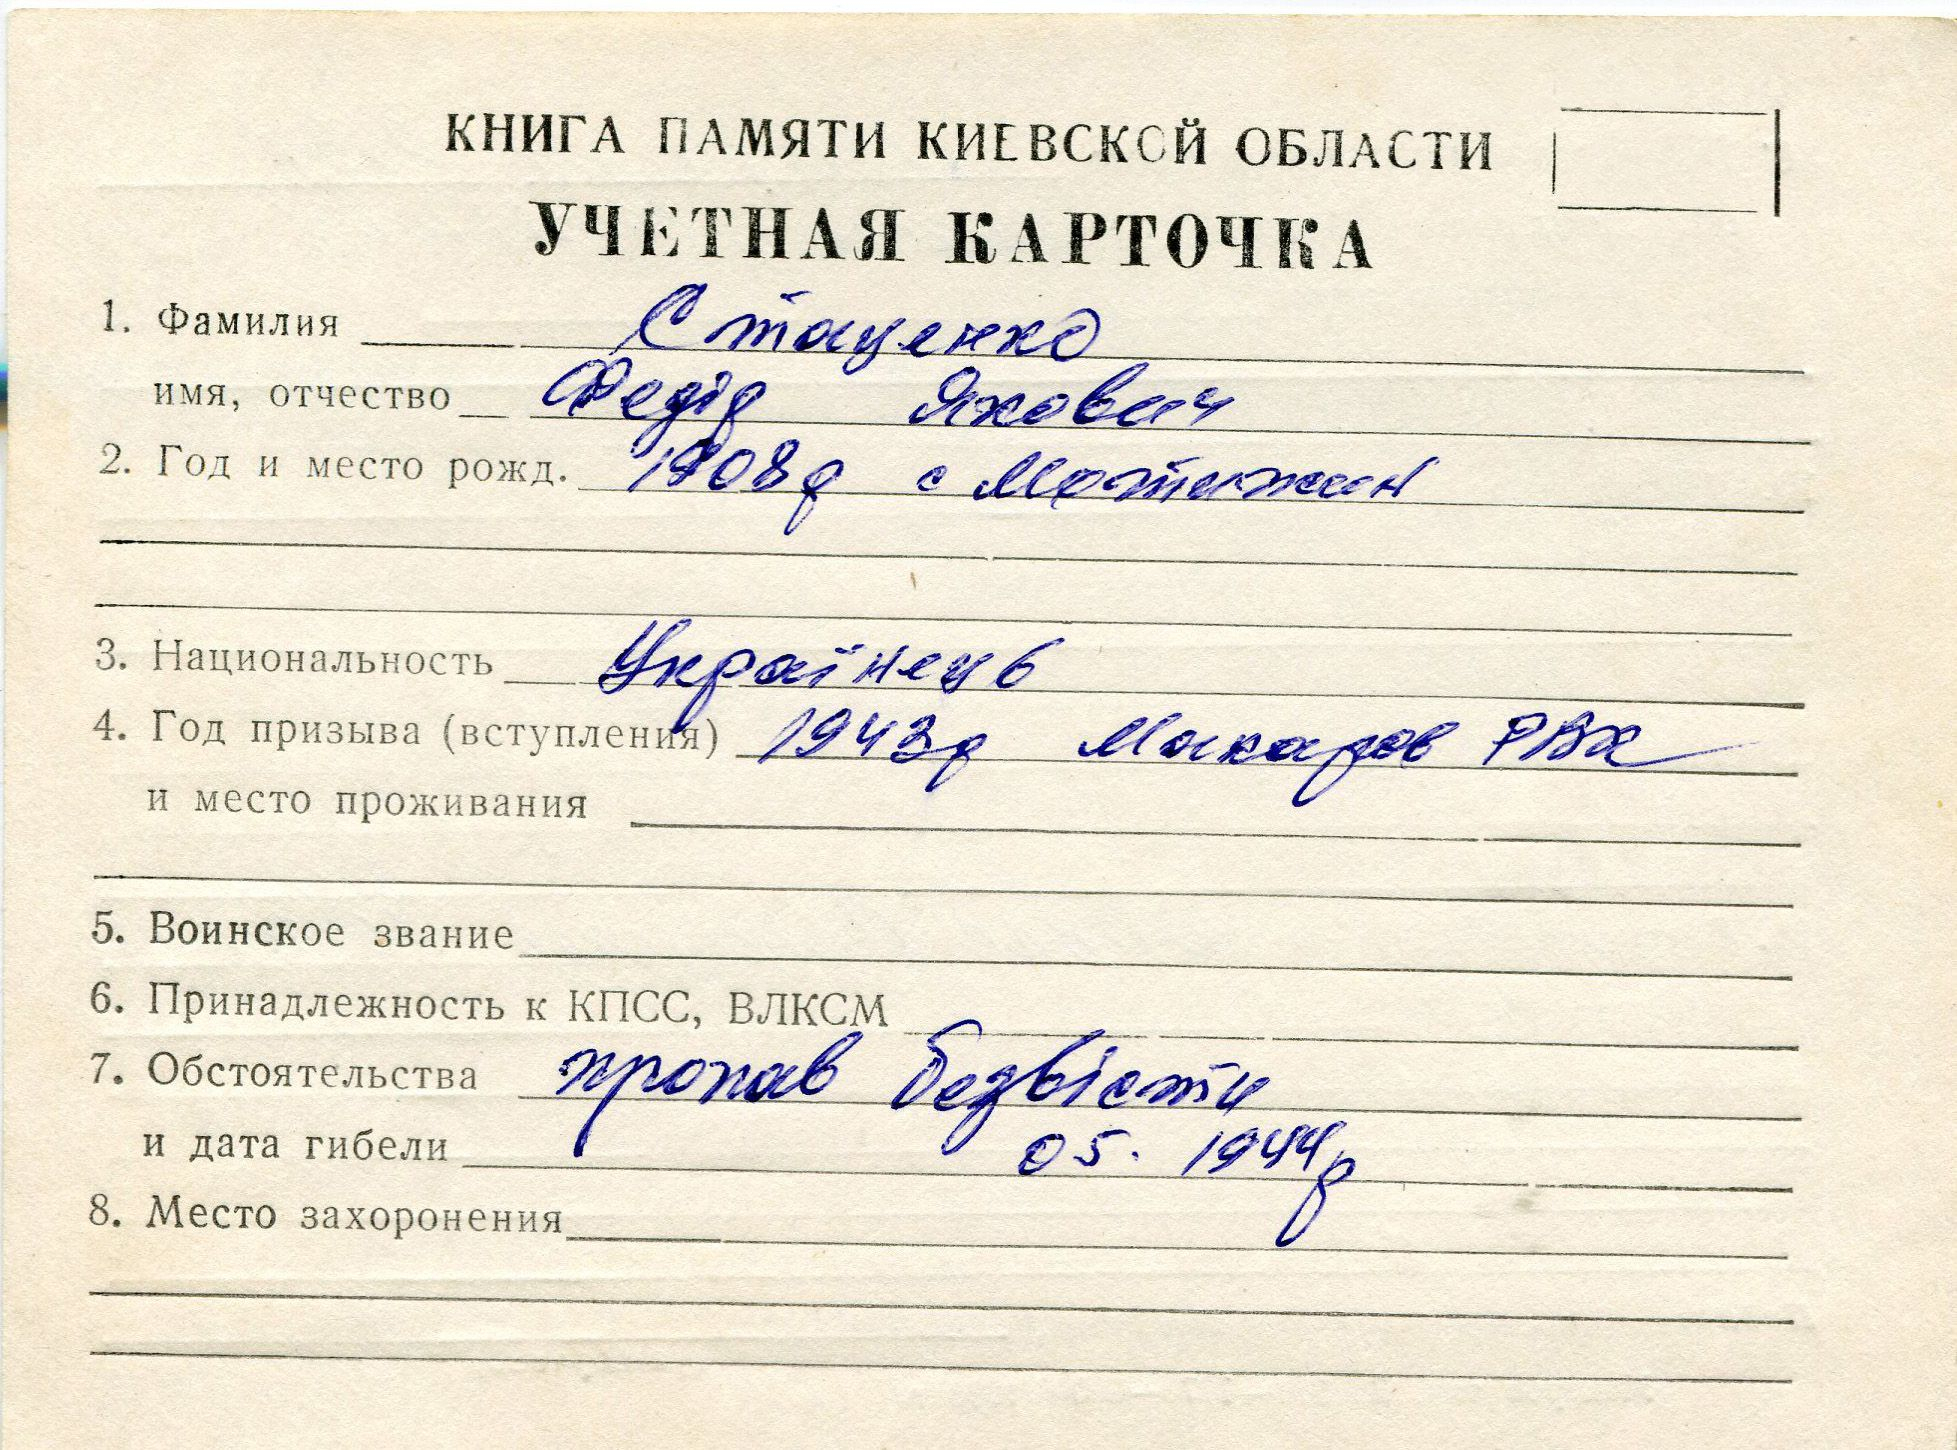 КНИГА ПАМЯТИ КИЕВСКОЙ ОБЛАСТИ
УЧЕТНАЯ КАРТОЧКА
1. Фамилия Стаценко
имя, отчество Федір Якович
2. Год и место рожд. 1908р с Мотижин
3. Национальность Українець
4. Год призыва (вступления) 1943р Макаров РВК
и место проживания
5. Воинское звание
6. Принадлежность к КПСС, ВЛКСМ
7. Обстоятельства пропав безвісти
и дата гибели 05. 1944р
8. Место захоронения